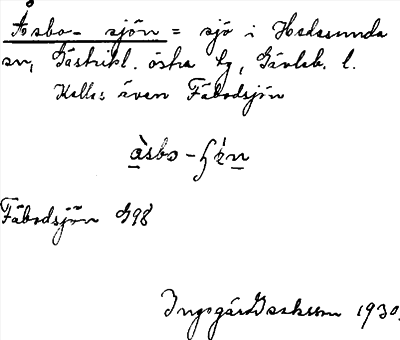 Åsbo-sjön = sjö i Hedesunda
sn, Gästrikl. östra tg, Gävleb. l.
Kallas även Fäbodsjön
åsbo-
Fäbodsjön G98
Ingegärd 1930.